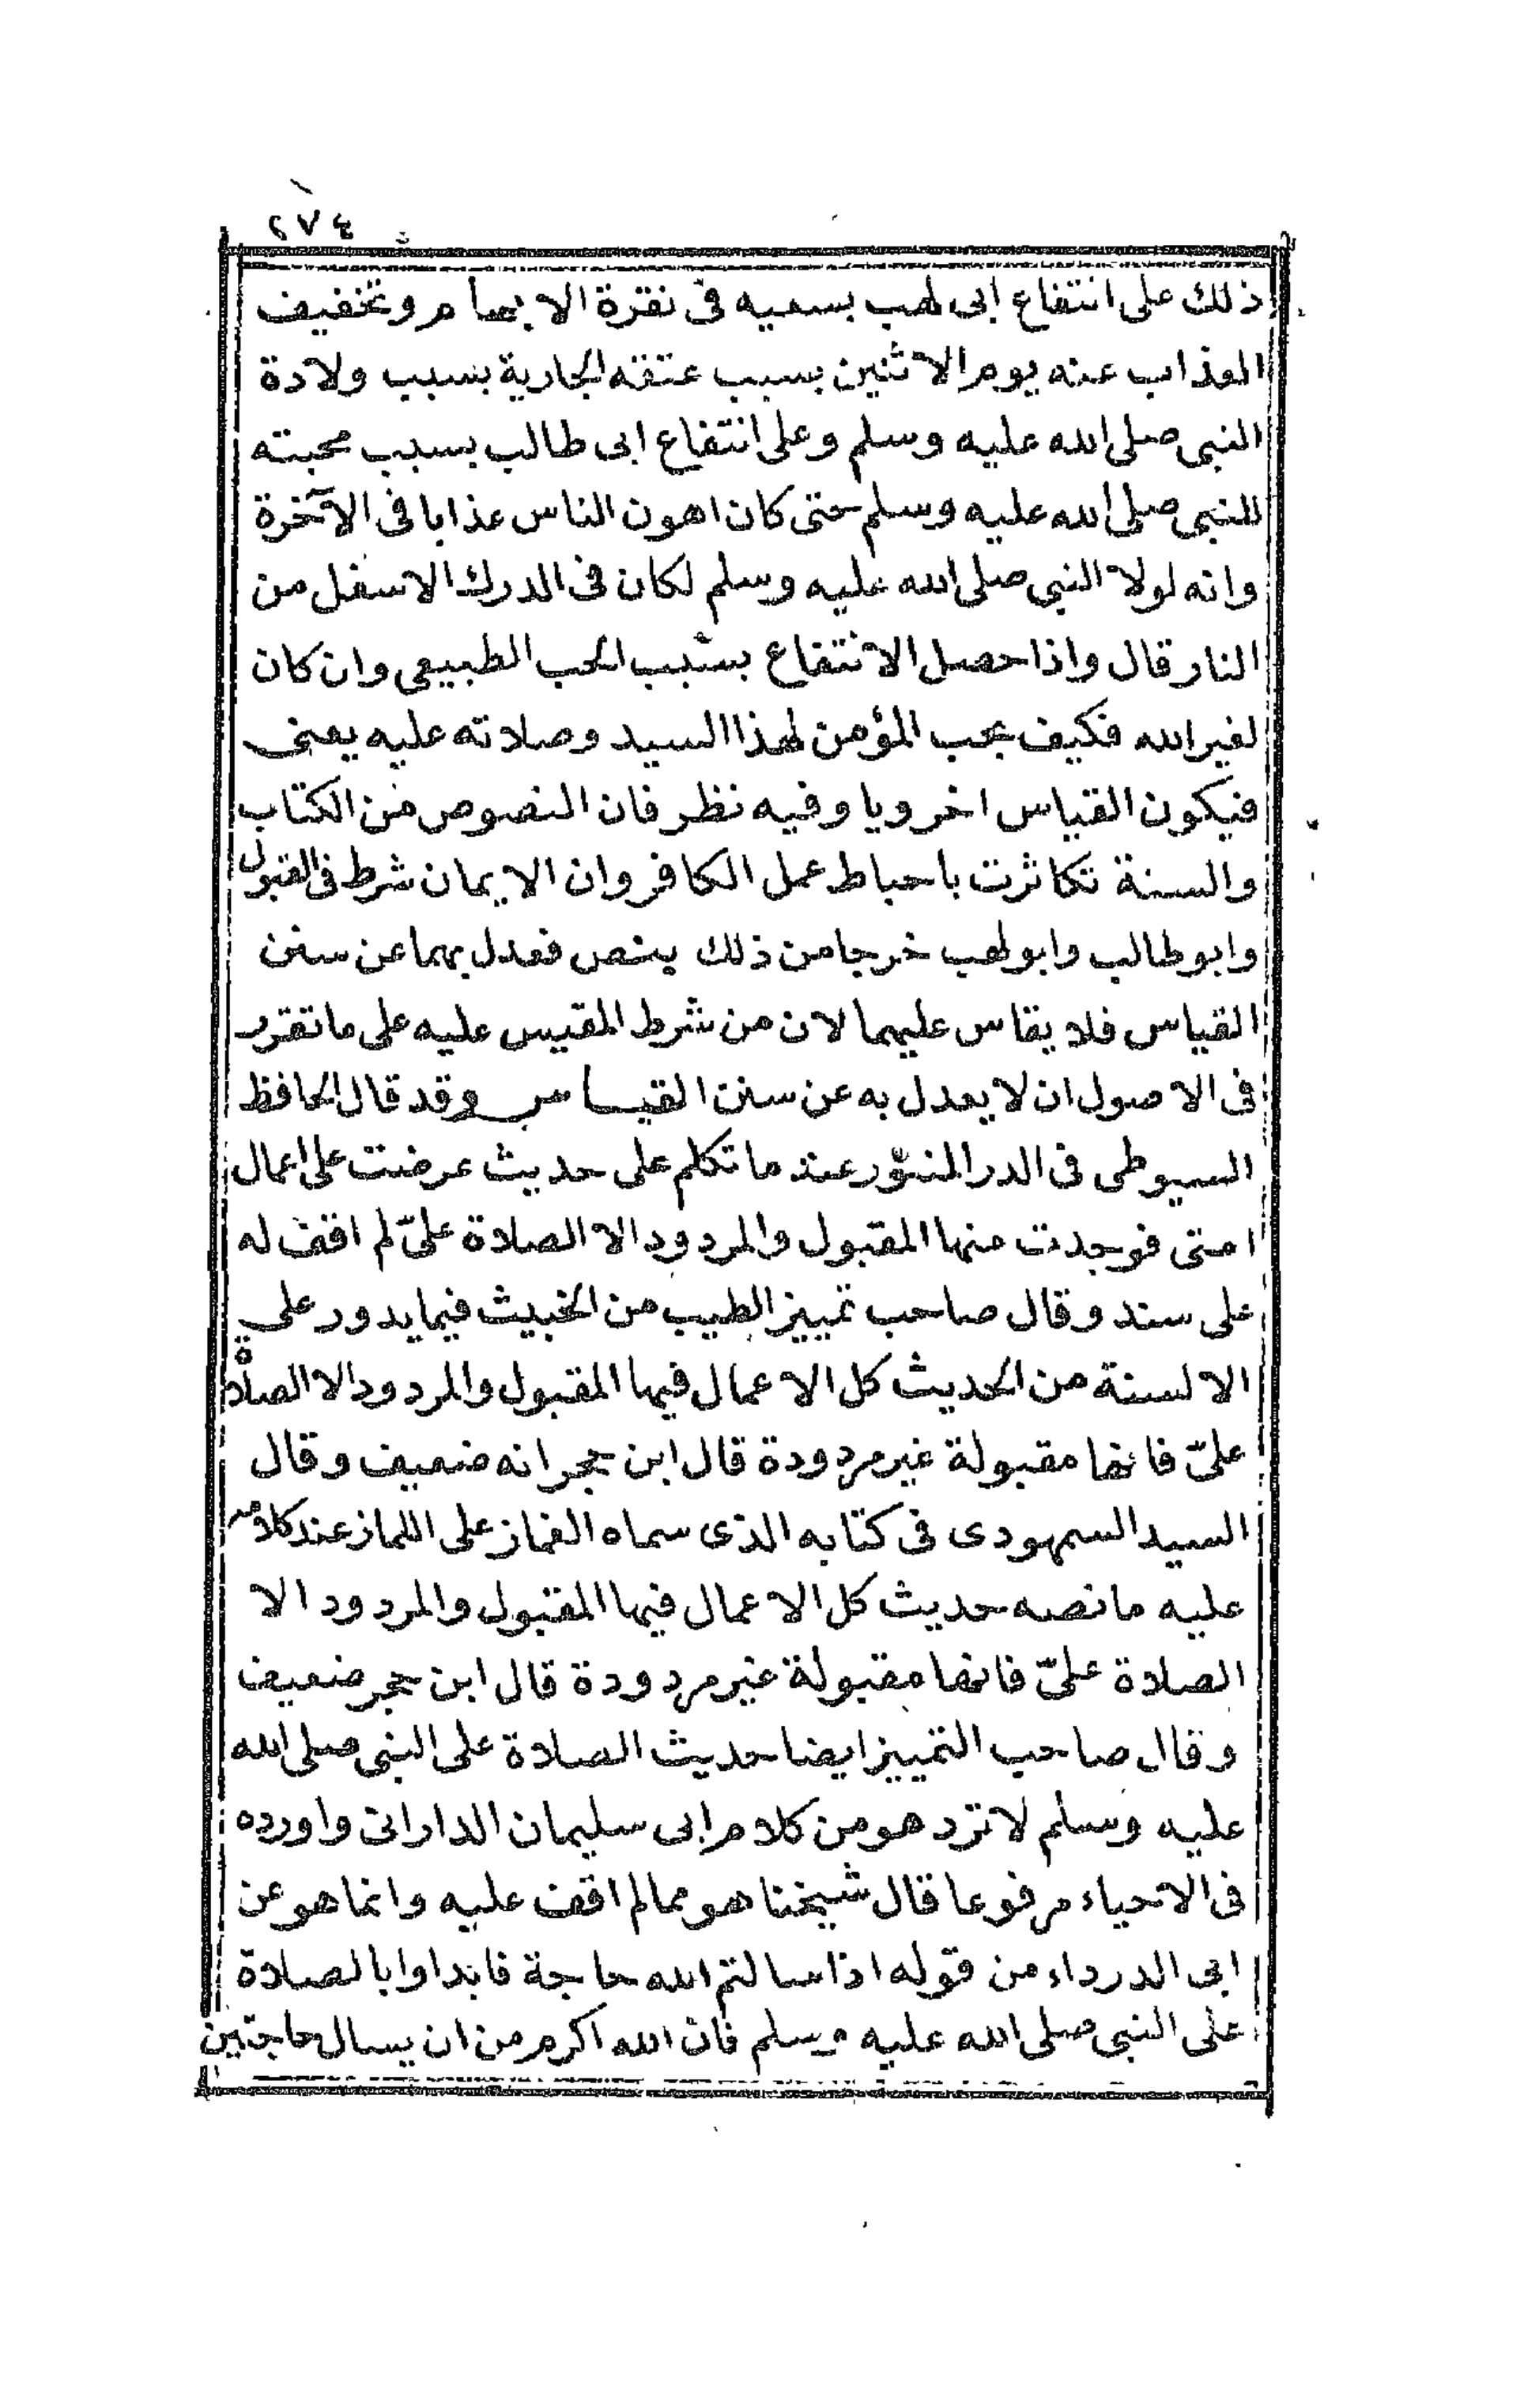 ٢٧٤
ذلك على انتفاع ابى لهب بسعيه فى نقرة الابهام وتخفيف
العذاب عنه يوم الاثنين بسبب عتقه الجارية بسبب ولادة
النبى صلى الله عليه وسلم وعلى انتفاع ابى طالب بسبب محبته
للنبى صلى الله عليه وسلم حتى كان اهون الناس عذابا فى الآخرة
وانه لولا النبى صلى الله عليه وسلم لكان فى الدرك الاسفل من
النار قال واذا حصل الانتفاع بسبب الحب الطبيعى وان كان
لغير الله فكيف بحب المؤمن لهذا السيد وصلاته عليه يعنى
فيكون القياس اخرويا وفيه نظر فان النصوص من الكتاب
والسنة تكاثرت باحباط عمل الكافر وان الايمان شرط فى القبول
وابو طالب وابو لهب خرجا من ذلك بنص فعدل بهما عن سنن
القياس فلا يقاس عليهما لان من شرط المقيس عليه على ما تقرر
فى الاصول ان لا يعدل به عن سنن القياس وقد قال الحافظ
السيوطى فى الدر المنثور عند ما تكلم على حديث عرضت على اعمال
امتى فوجدت منها المقبول والمردود الا الصلاة علىّ لم اقف له
على سند وقال صاحب تمييز الطيب من الخبيث فيما يدور على
الالسنة من الحديث كل الاعمال فيها المقبول والمردود الا الصلاة
علىّ فانها مقبولة غير مردودة قال ابن حجر انه ضعيف وقال
السيد السمهودى فى كتابه الذى سماه الغماز على اللماز عند كلامه
عليه ما نصه حديث كل الاعمال فيها المقبول والمردود الا
الصلاة علىّ فانها مقبولة غير مردودة قال ابن حجر ضعيف
وقال صاحب التمييز ايضا حديث الصلاة على النبى صلى الله
عليه وسلم لا ترد هو من كلام ابى سليمان الدارانى واورده
فى الاحياء مرفوعا قال شيخنا هو مما لم اقف عليه وانما هو عن
ابى الدرداء من قوله اذا سالتم الله حاجة فابداوا بالصلاة
على النبى صلى الله عليه وسلم فان الله اكرم من ان يسال حاجتين